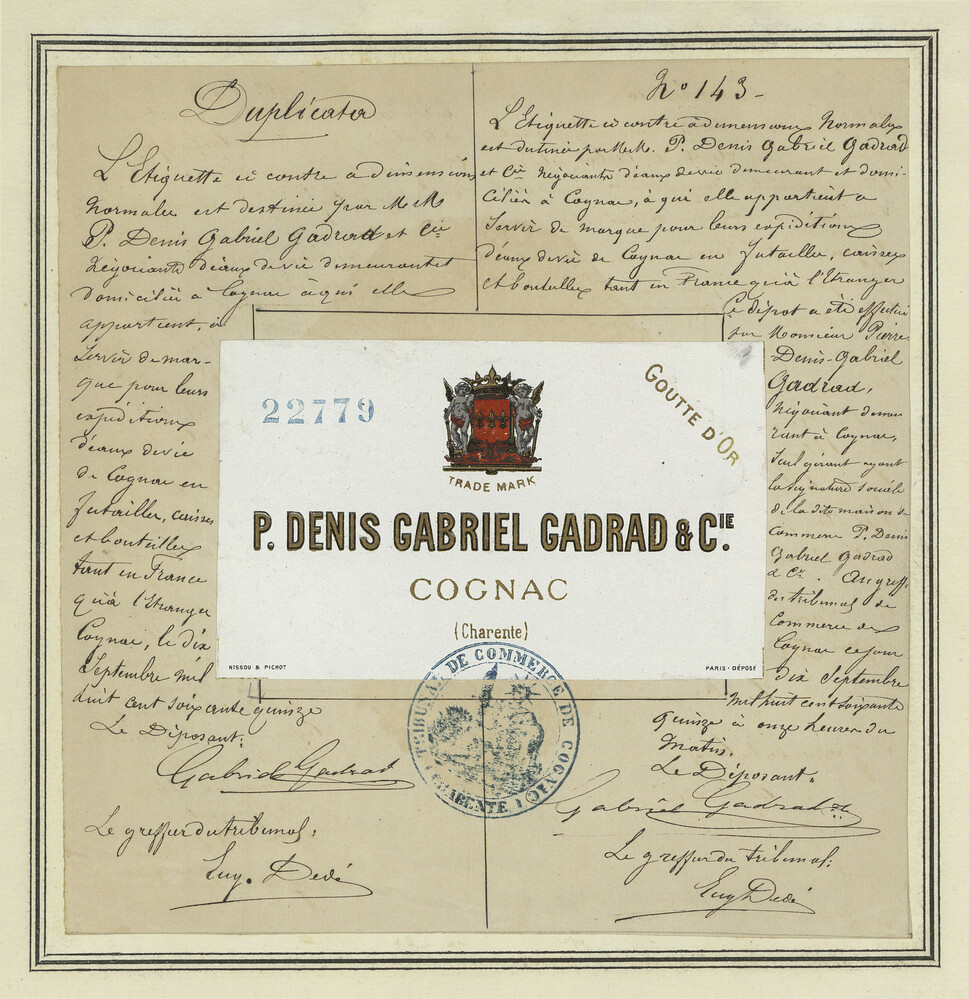 Duplicata
L'Etiquette ci contre a dimensions
Normales est destinée par M M
P. Denis Gabriel Gadrad et Cie
Négociants d'eaux de vie demeurant et
domiciliés à Cognac à qui elle
appartient, à
servir de mar-
que pour leurs
expéditions
d'eaux de vie
de Cognac en
futailles, caisses
et bouteilles
tant en France
qu'à l'Etranger
Cognac, le dix
Septembre mil
huit cent soixante quinze
Le Déposant.
Gabriel Gadrad
Le greffier du tribunal:
Eug. Dedé
No 143 -
L'Etiquette ci contre à dimensions Normales
est destinée par M.M. P. Denis Gabriel Gadrad
et Cie Négociants d'eaux de vie demeurant et domi-
ciliés à Cognac, à qui elle appartient a
Servir de marque pour leurs expéditions
d'eaux de vie de Cognac en futailles, caisses
et bouteilles tant en France qu'à l'Etranger
Ce dépot a été effectué
par Monsieur Pierre
Denis-Gabriel
Gadrad,
Négociant demeu
rant à Cognac,
Seul gérant ayant
la signature sociale
de la dite maison de
Commerce P. Denis
Gabriel Gadrad
& Cie. Au greffe
du tribunal de
Commerce de
Cognac ce jour
dix Septembre
mil huit cent soixante
quinze à onze heures du
matin.
Le Déposant.
Gabriel Gadrad
Le greffier du tribunal:
Eug Dedé
22779
GOUTTE D'OR
TRADE MARK
P. DENIS GABRIEL GADRAD & CIE.
COGNAC
(Charente)
NISSOU & PICHOT
PARIS - DÉPOSÉ
TRIBUNAL DE COMMERCE DE COGNAC
CHARENTE